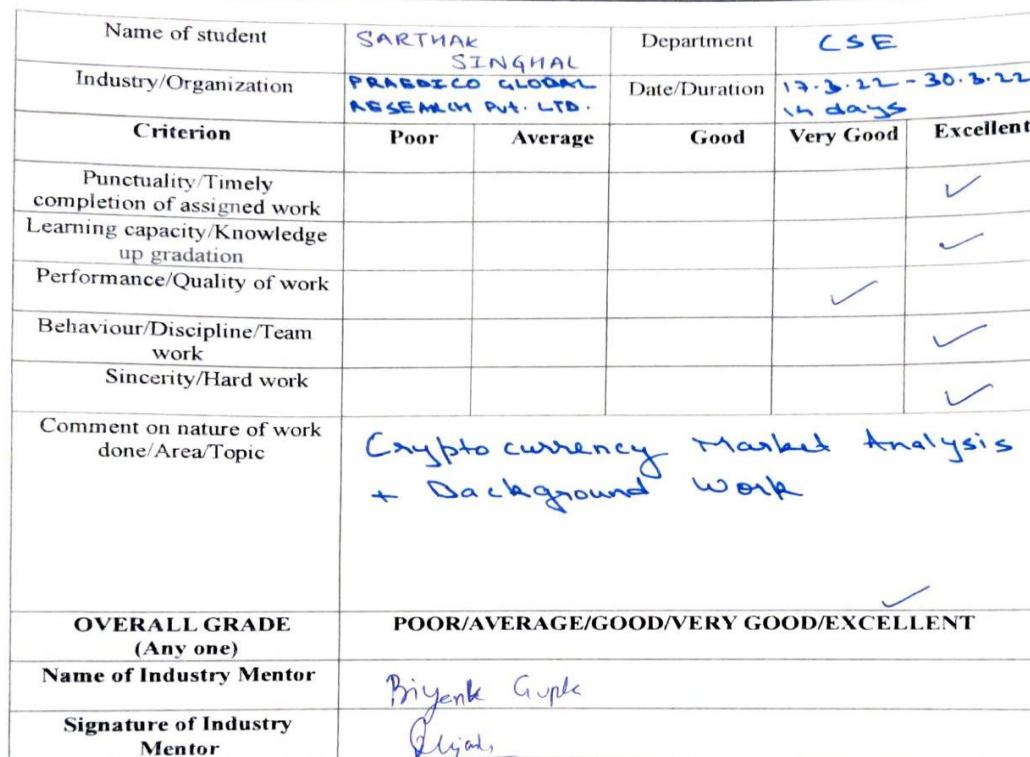 Name of student SARTHAK Department CSE
SINGHAL
Industry/Organization PRAEDICO GLOBAL Date/Duration 17.3.22 - 30.3.22
RESEARCH Pvt. LTD. 14 days
Criterion Poor Average Good Very Good Excellent
Punctuality/Timely ✓
completion of assigned work
Learning capacity/Knowledge ✓
up gradation
Performance/Quality of work ✓
Behaviour/Discipline/Team ✓
work
Sincerity/Hard work ✓
Comment on nature of work Cryptocurrency Market Analysis
done/Area/Topic + Background Work
✓
OVERALL GRADE POOR/AVERAGE/GOOD/VERY GOOD/EXCELLENT
(Any one)
Name of Industry Mentor Gupta
Signature of Industry
Mentor